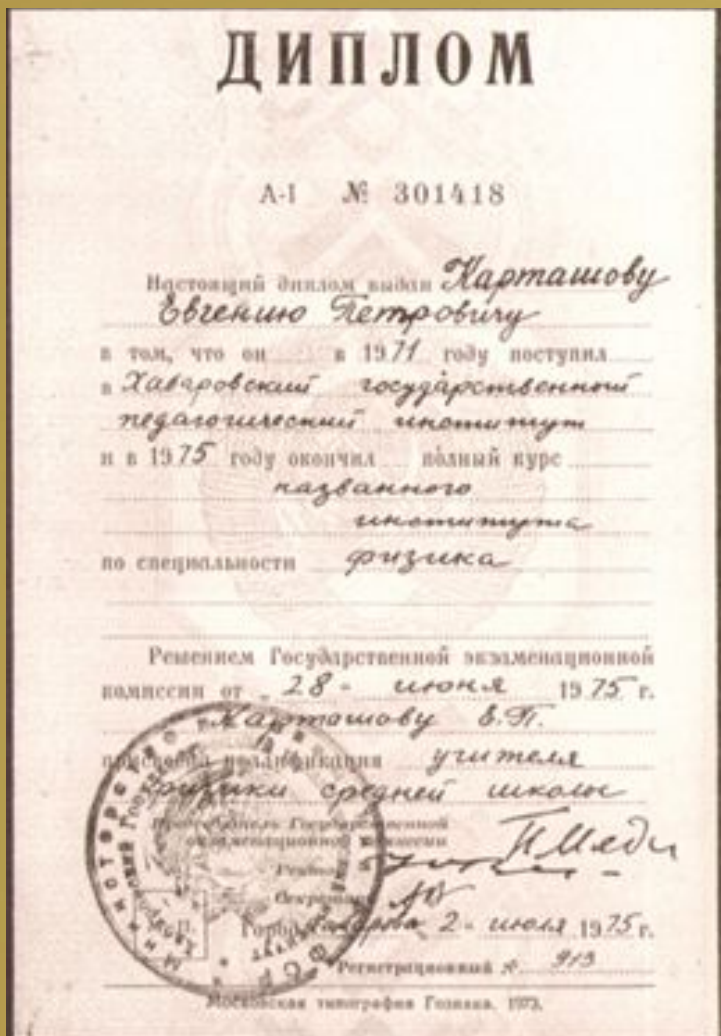 ДИПЛОМ
А-I № 301418
Настоящий диплом выдан Карташову
Евгению Петровичу
в том, что он в 1971 году поступил
в Хабаровский государственный
педагогический институт
и в 1975 году окончил полный курс
названного
института
по специальности физика
Решением Государственной экзаменационной
комиссии от „28" июня 1975 г.
Карташову Е.П.
присвоена квалификация учителя
физики средней школы
Председатель Государственной
экзаменационной комиссии
Ректор
Секретарь
Город Хабаровск 2 июля 1975 г.
Регистрационный № 913
Московская типография Гознака. 1973.